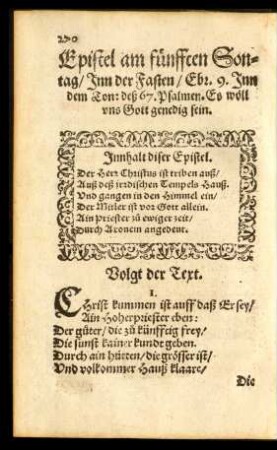 290
Epistel am fünfften Son-
tag/ Jnn der Fasten/ Ebr. 9. Jnn
dem Ton: deß 67. Psalmen. Es wöll
vns Gott genedig sein.
Jnnhalt diser Epistel.
Der Herr Christus ist triben auß/
Auß deß irrdischen Tempels Hauß.
Vnd gangen in den Himmel ein/
Der Mitler ist vor Gott allein.
Ain priester zů ewiger zeit/
Durch Aronem angedeut.
Volgt der Text.
1.
CHrist kummen ist auff daß Er sey/
Ain Hoherpriester eben:
Der güter/ die zů künfftig frey/
Die sunst kainer kundt geben.
Durch ain hütten/ die grösser ist/
Vnd volkommer Hauß klaare/
Die